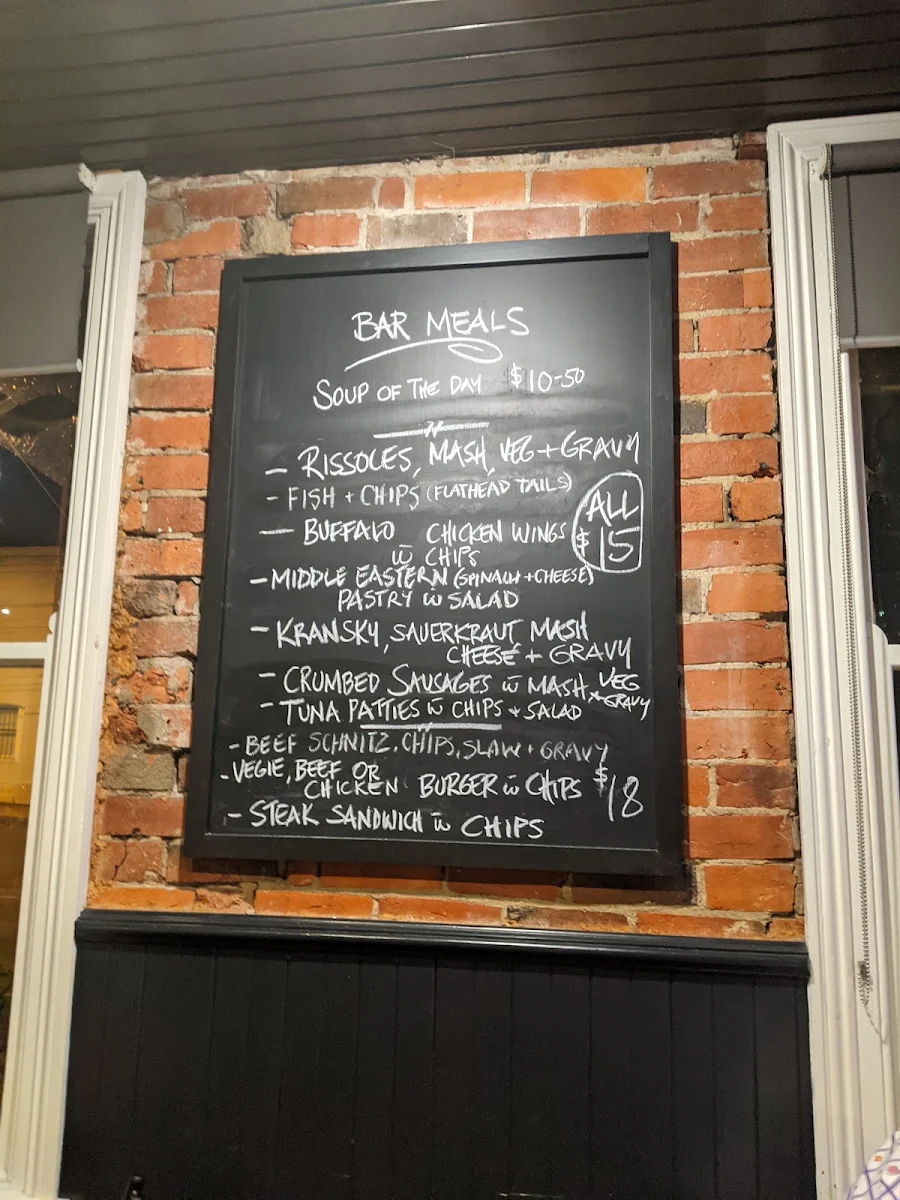 BAR MEALS
SOUP OF THE DAY $10-50
- RISSOLES, MASH, VEG + GRAVY
- FISH + CHIPS (FLATHEAD TAILS)
ALL
$15
- BUFFALO - CHICKEN WINGS
w̄ CHIPS
- MIDDLE EASTERN (SPINACH + CHEESE)
PASTRY w̄ SALAD
- KRANSKY, SAUERKRAUT, MASH
CHEESE + GRAVY
- CRUMBED SAUSAGES w̄ MASH, VEG
+ GRAVY
- TUNA PATTIES w̄ CHIPS + SALAD
- BEEF SCHNITZ, CHIPS, SLAW + GRAVY
- VEGIE, BEEF OR
CHICKEN BURGER w̄ CHIPS $18
- STEAK SANDWICH w̄ CHIPS